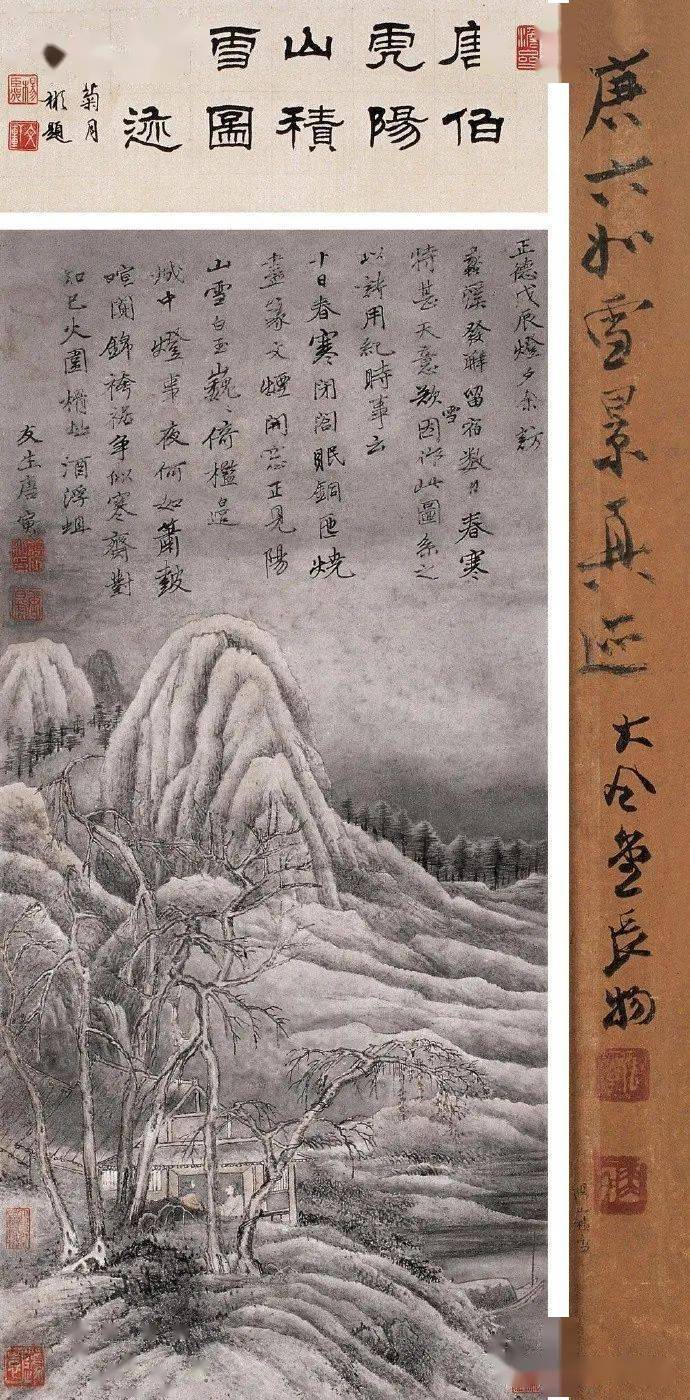 唐伯
虎陽
山積
雪圖
迹
菊月
彬題
正德戊辰燈夕余訪
溪發解留宿数日春寒
特甚天意欲雪因作此圖系之
以詩用紀時事云
十日春寒閉閤眠銅匜燒
盡篆文煙開窓正見陽
山雪白玉巍〻倚檻邊
城中燈事夜何如蕭鼓
喧闐錦袴裾争似寒齋對
知己火圍榾柮酒浮蛆
友生唐寅
唐六如雪景真迹
大風堂長物